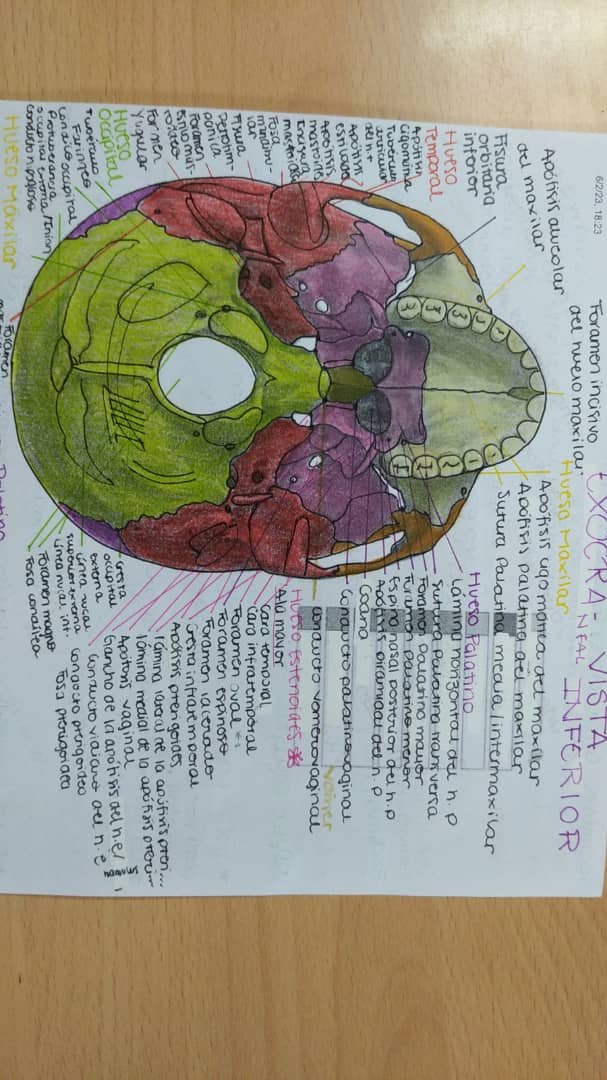 6/2/23, 18:23
EXOCRA-NEAL VISTA
INFERIOR
Foramen incisivo
del hueso maxilar
Apófisis alveolar
del maxilar
Fisura
orbitaria
inferior
Hueso
Temporal
Apófisis
cigomática
Tubérculo
articular
del h.t
Apófisis
estiloide
Apófisis
mastoides
Incisura
mastoidea
Fosa
mandibu-
lar
Fisura
petrotim-
pánica
Foramen
estilomas-
toideo
Foramen
Yugular
Hueso
Occipital
Tubérculo
Faríngeo
Cóndilo occipital
Protuberancia
occipital externa / Inion
Conducto hipogloso
Hueso Maxilar
Foramen
Hueso Maxilar
Apófisis cigomática del maxilar
Apófisis palatina del maxilar
Sutura Palatina media/intermaxilar
Hueso Palatino
Lámina horizontal del h.p
Sutura Palatina transversa
Foramen Palatino mayor
Foramen Palatino menor
Espina nasal posterior del h.p
Apófisis piramidal del h.p
Coana
Conducto palatinovaginal
Vómer
Conducto vomerovaginal
Hueso Esfenoides
Ala mayor
Cara temporal
Cara infratemporal
Foramen oval
Foramen espinoso
Foramen lacerado
Cresta infratemporal
Apófisis pterigoides
lámina lateral de la apófisis pteri...
lámina medial de la apófisis pteri...
Apófisis vaginal
Gancho de la apófisis del h.e/
hamulus
Conducto vidiano del h.e
Conducto pterigoideo
Fosa pterigoidea
Cresta
occipital
externa
Línea nucal
superior externa
Línea nucal inf.
Foramen magno
Fosa condílea